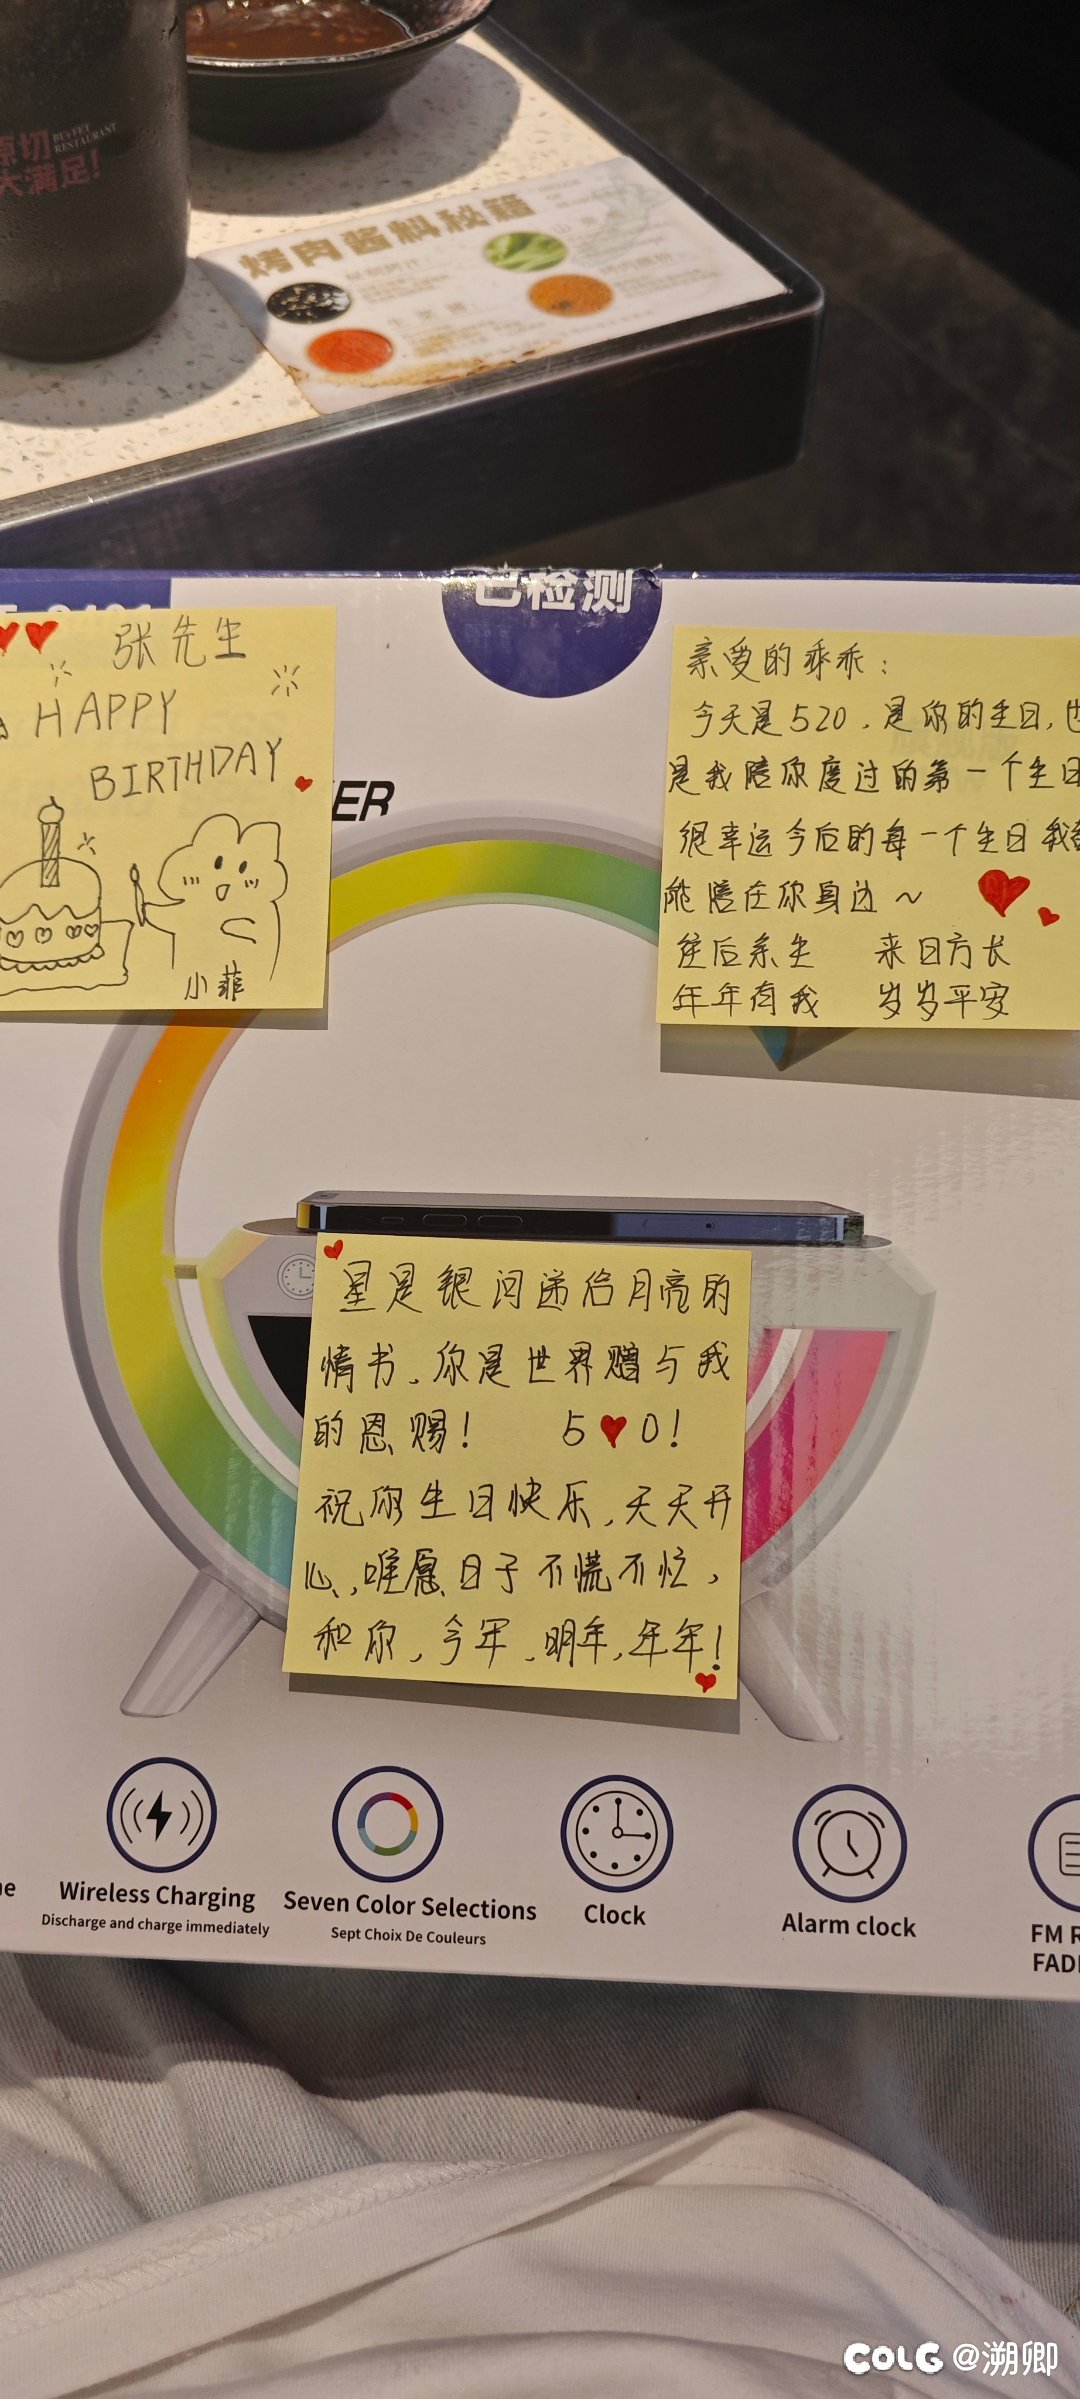 原切
BUFFET
RESTAURANT
大满足!
烤肉酱料秘籍
已检测
张先生
HAPPY
BIRTHDAY
小菲
ER
亲爱的乖乖:
今天是520,是你的生日,也
是我陪你度过的第一个生日
很幸运今后的每一个生日我都
能陪在你身边~
往后余生 来日方长
年年有我 岁岁平安
星是银河递给月亮的
情书,你是世界赠与我
的恩赐! 5♥0!
祝你生日快乐,天天开
心,唯愿日子不慌不忙,
和你,今年,明年,年年!
Wireless Charging
Discharge and charge immediately
Seven Color Selections
Sept Choix De Couleurs
Clock
Alarm clock
FM R
FADI
COLG @溯卿